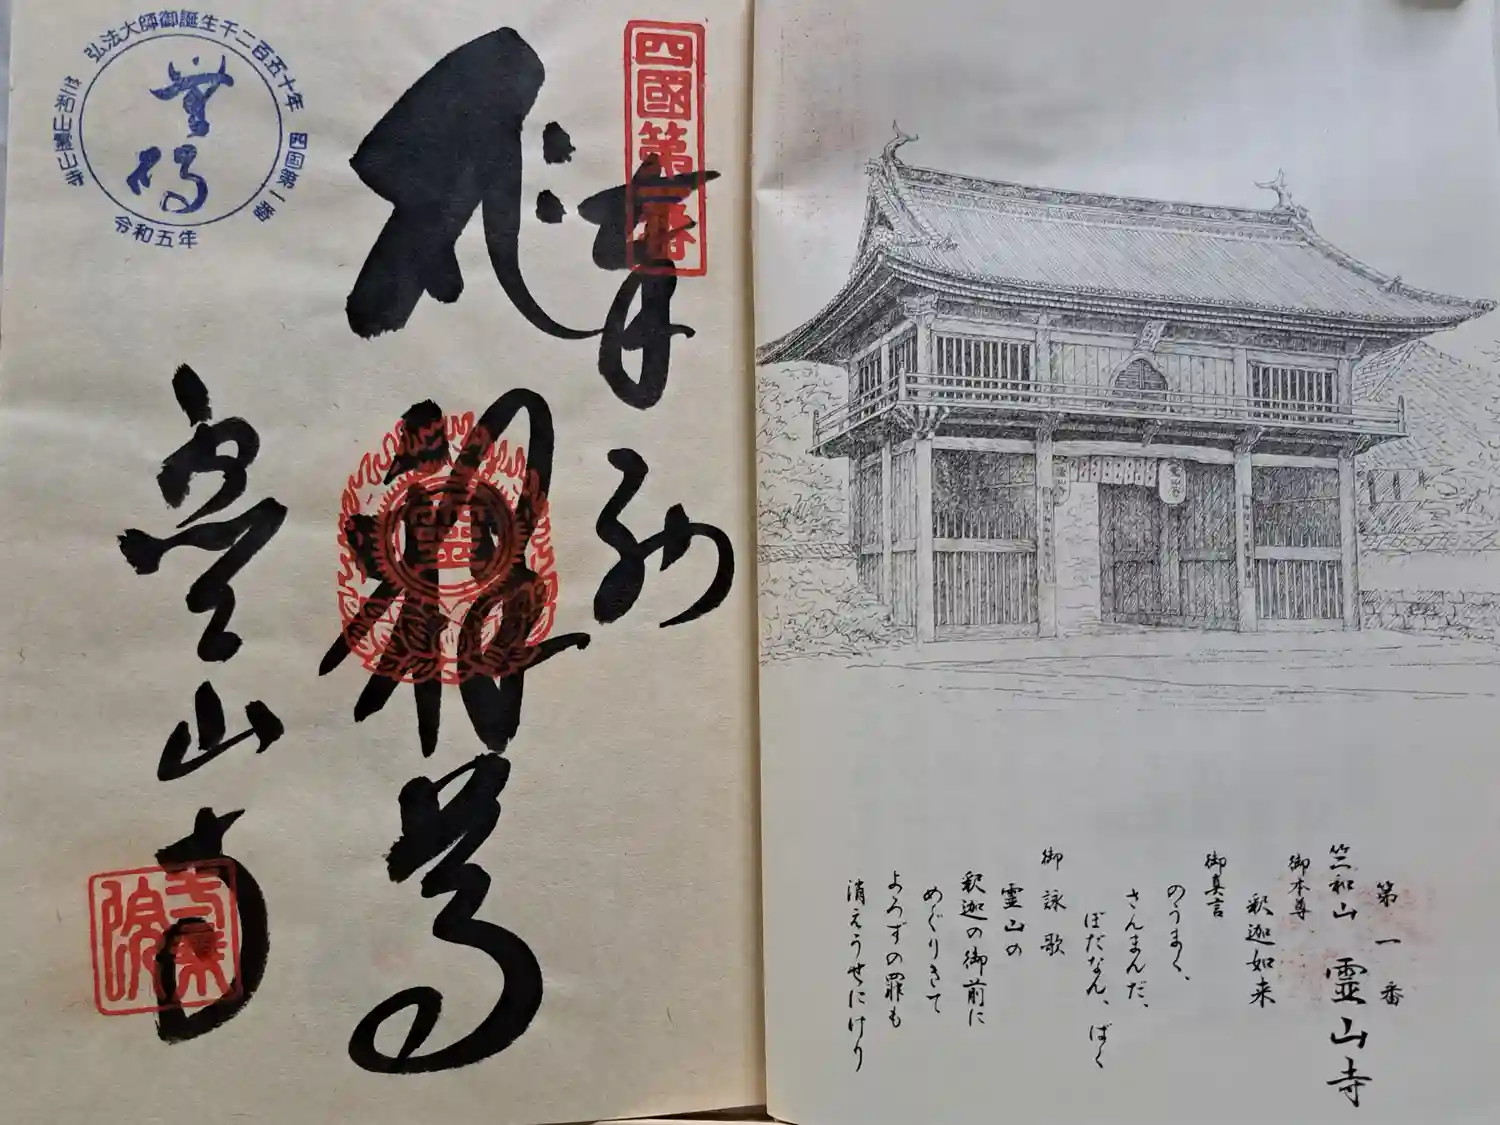 四國第一番
奉納
本尊
霊山寺
弘法大師御誕生千二百五十年
四国第一番
令和五年
竺和山霊山寺
第一番
竺和山 霊山寺
御本尊
釈迦如来
御真言
のうまく、
さんまんだ、
ぼだなん、ばく
御詠歌
霊山の
釈迦の御前に
めぐりきて
よろずの罪も
消えうせにけり